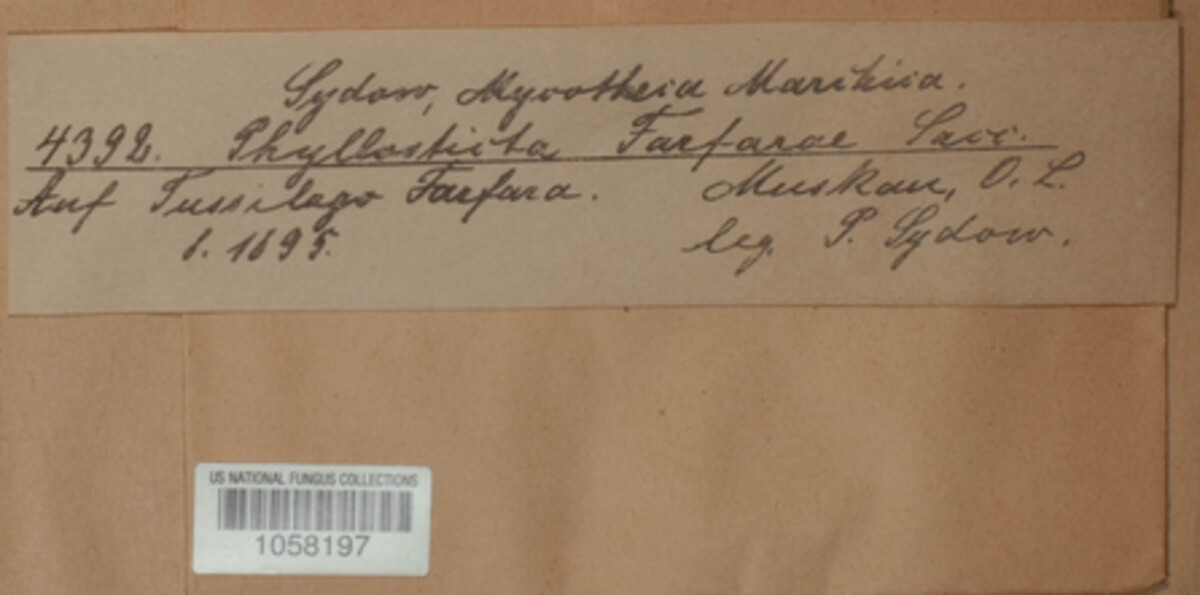 Sydow, Mycotheca Marchica.
4392. Phyllosticta Farfarae Sacc.
Auf Tussilago Farfara. Muskau, O. L.
8. 1895. leg. P. Sydow.
US NATIONAL FUNGUS COLLECTIONS
1058197